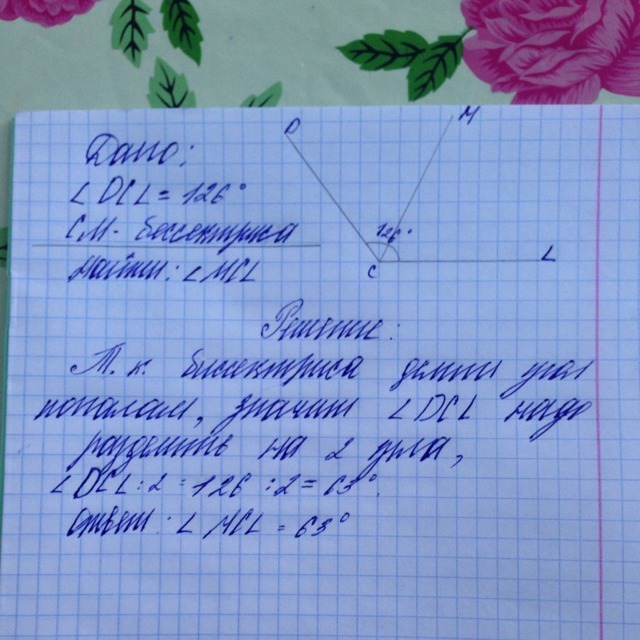 Дано:
∠DCL = 126°
CM - биссектриса
Найти: ∠MCL
D
M
126°
C
L
Решение:
Т.к. биссектриса делит угол
пополам, значит ∠DCL надо
разделить на 2 угла,
∠DCL : 2 = 126 : 2 = 63°.
Ответ: ∠MCL = 63°